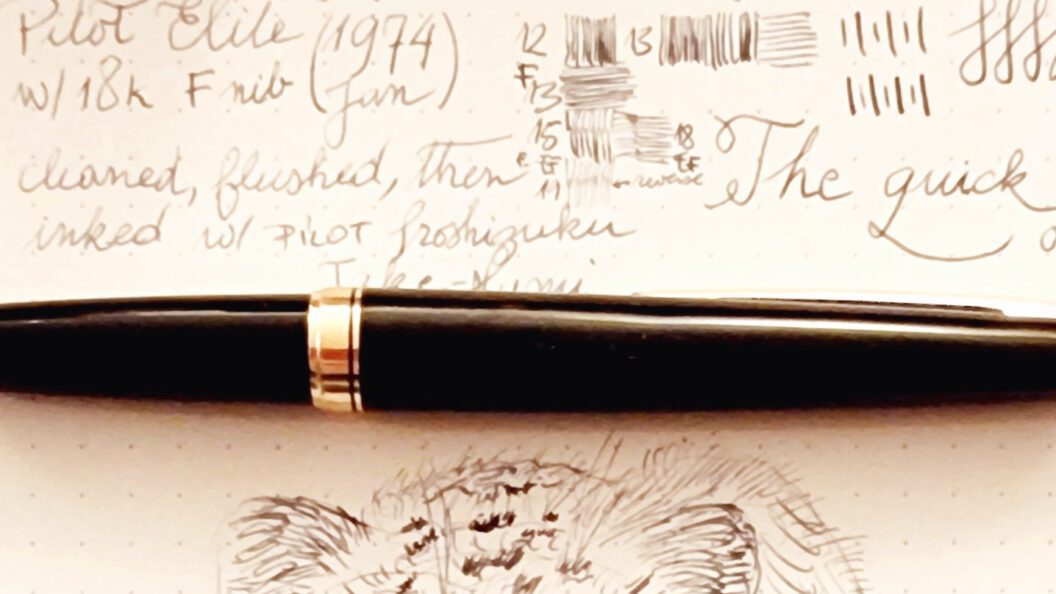 Pilot Elite (1974)
w/ 18k F nib (Jan)
cleaned, flushed, then
inked w/ PILOT Iroshizuku
Take-Sumi
12 13
F
13
15 18
F EF EF
11 ← reverse
The quick